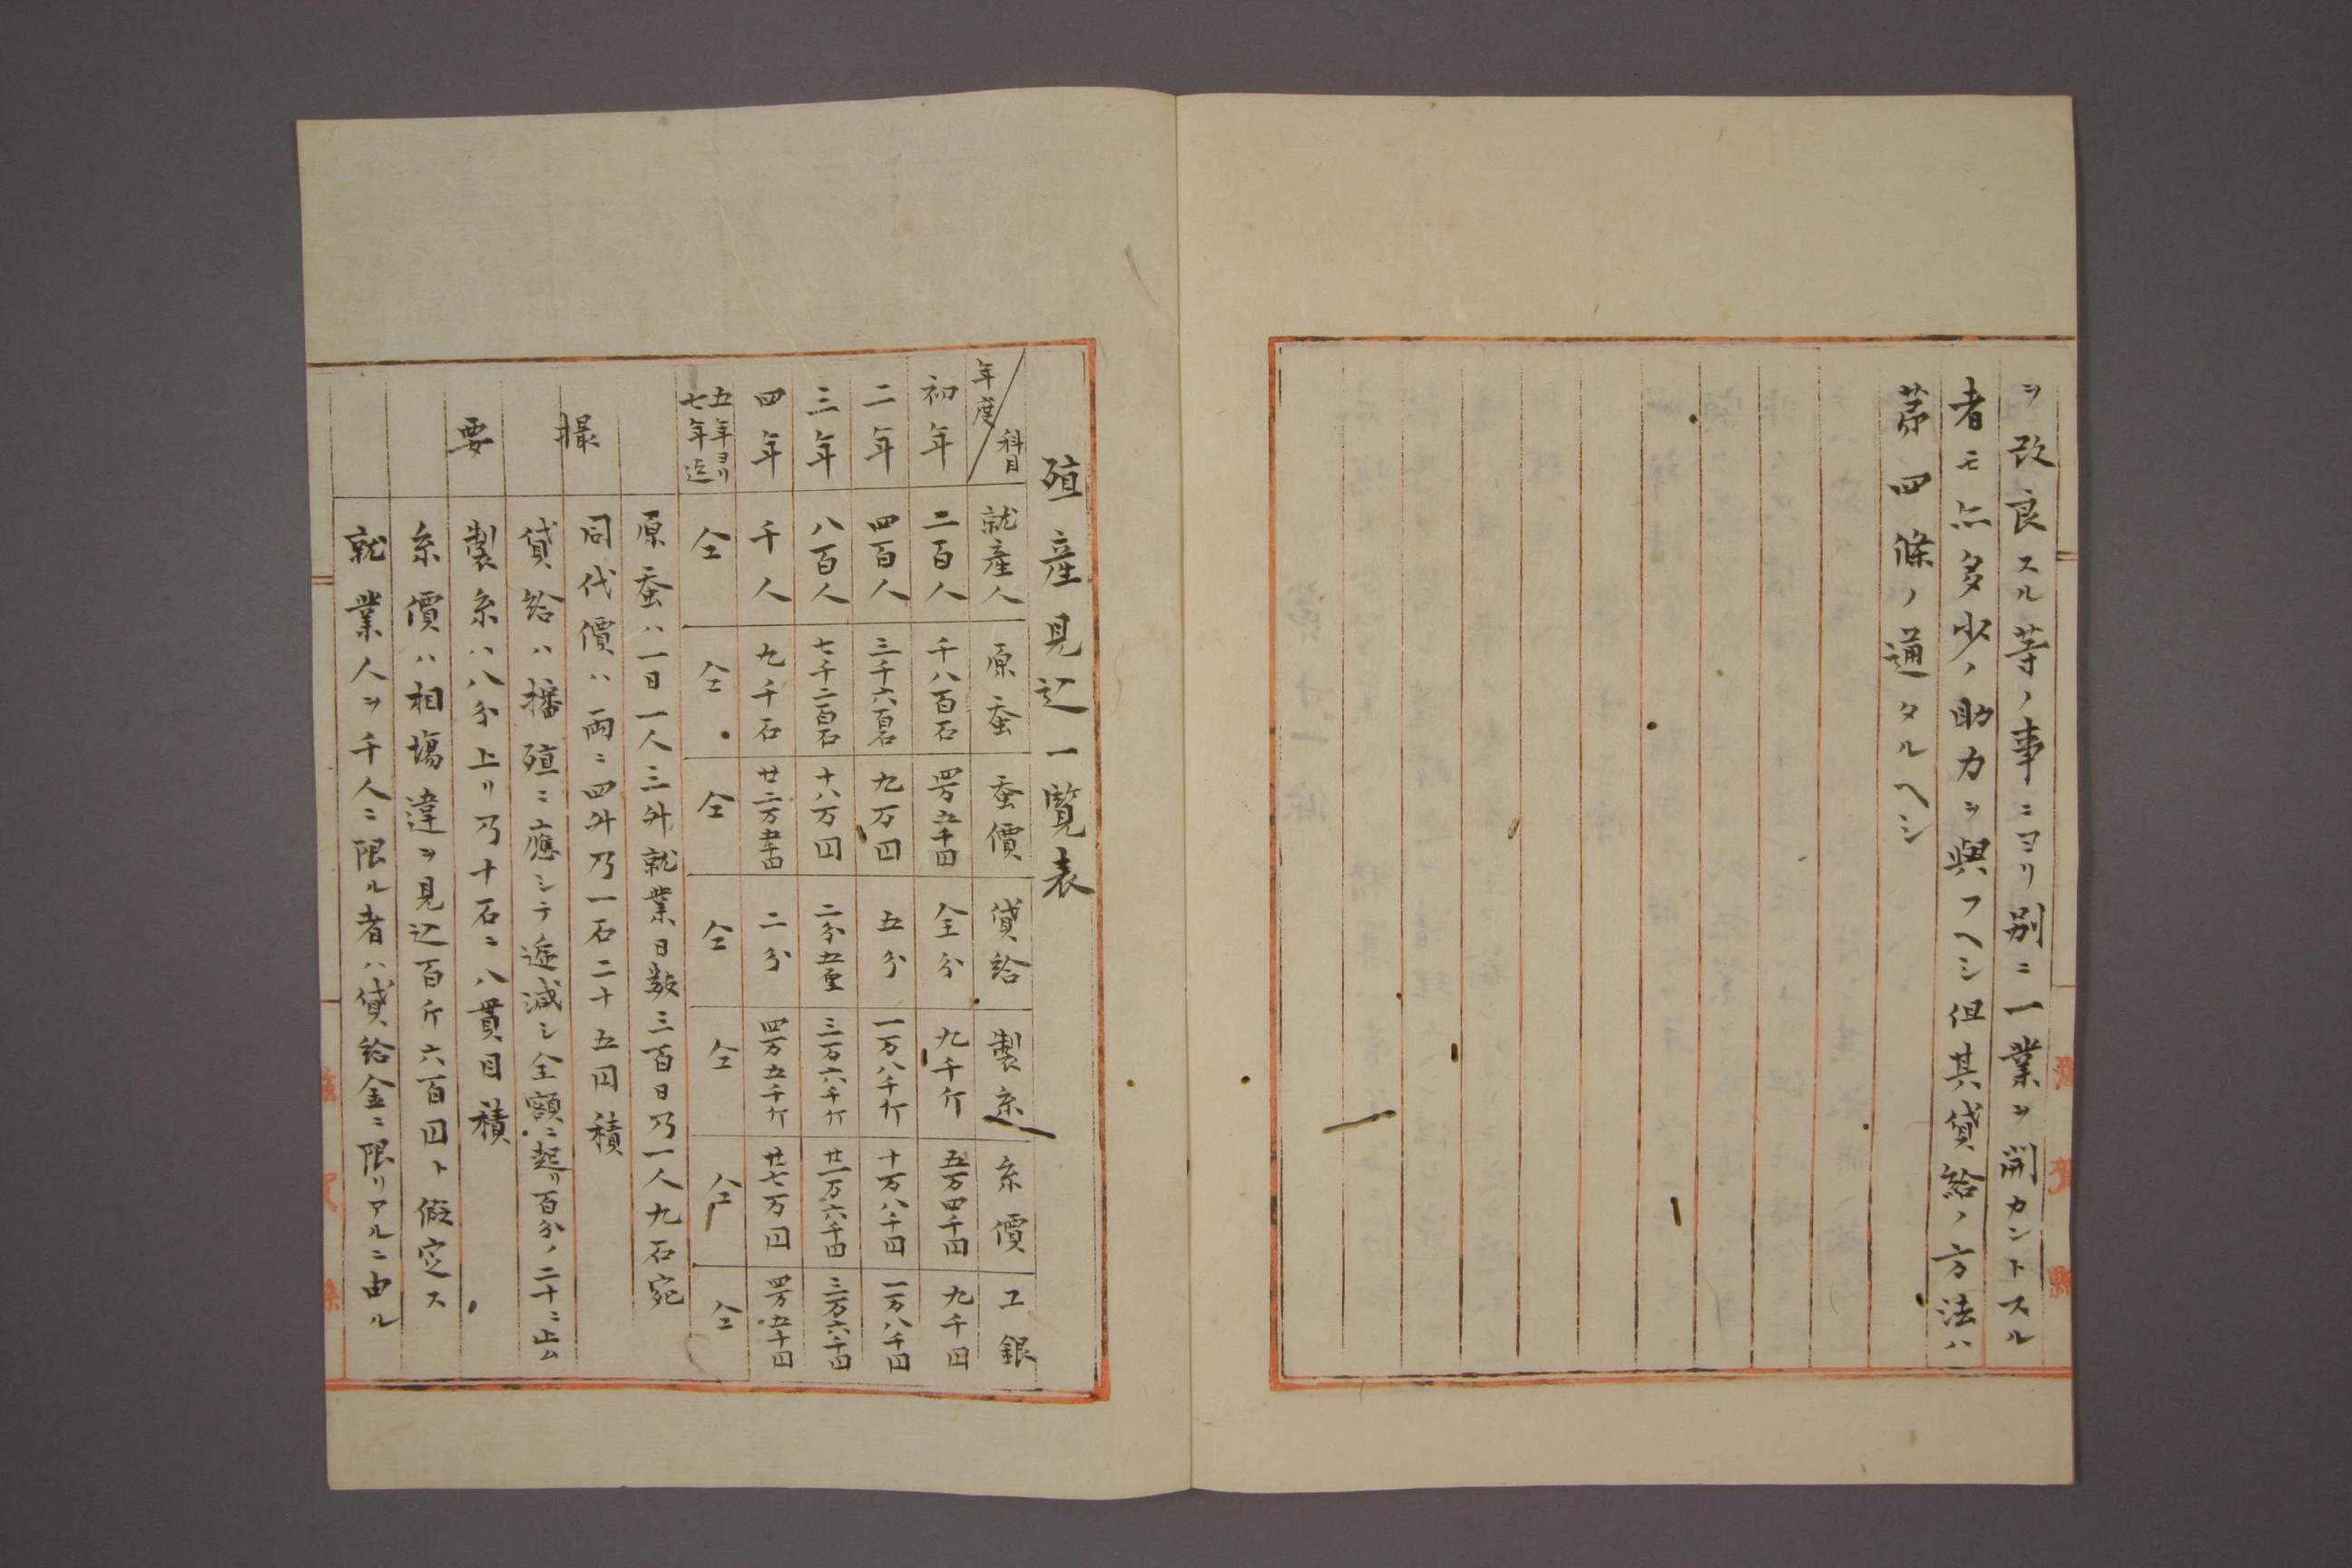 ヲ改良スル等ノ事ニヨリ別ニ一業ヲ開カントスル
者モ亦多少ノ助力ヲ與フヘシ但其貸給ノ方法ハ
茅四條ノ通タルヘシ
滋賀縣
殖産見込一覧表
年度 科目 就産人 原蚕 蚕價 貸給 製糸 糸價 工銀
初年 二百人 千八百石 四万五千円 全分 九千斤 五万四千円 九千円
二年 四百人 三千六百石 九万円 五分 一万八千斤 十万八千円 一万八千円
三年 八百人 七千二百石 十八万円 二分五厘 三万六千斤 廿一万六千円 三万六千円
四年 千人 九千石 廿二万五千円 二分 四万五千斤 廿七万円 四万五千円
五年ヨリ七年迄 仝 仝 仝 仝 仝 仝 仝
撮要
原蚕ハ一日一人三升就業日数三百日乃一人九石宛
同代價ハ両ニ四升乃一石二十五円積
貸給ハ播殖ニ應シテ逓減シ全額ニ起リ百分ノ二十ニ止ム
製糸ハ八分上リ乃十石ニ八貫目積
糸價ハ相場違ヲ見込百斤六百円ト假定ス
就業人ヲ千人ニ限ル者ハ貸給金ニ限リアルニ由ル
滋賀縣